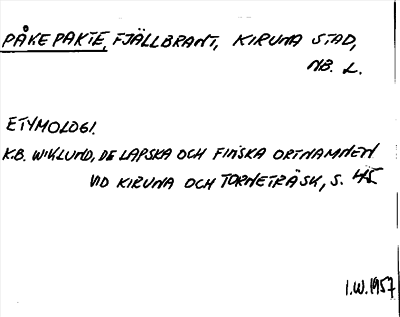 PÅKEPAKTE, FJÄLLBRANT, KIRUNA STAD,
NB. L.
ETYMOLOGI.
K.B. WIKLUND, DE LAPSKA OCH FINSKA ORTNAMNEN
VID KIRUNA OCH TORNETRÄSK, S. 45
I.W. 1957